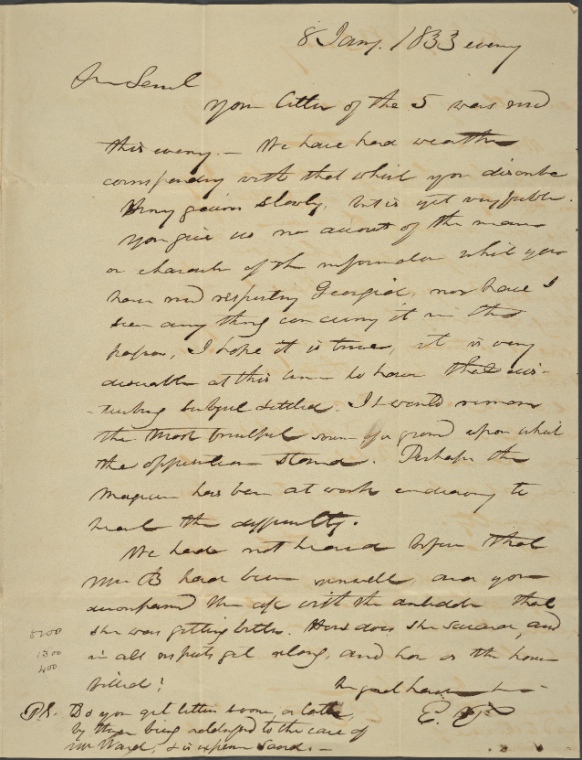 8 Jany. 1833 eveng
Dr Saml
your letter of the 5 was recd
this eveng. — We have had weather
corresponding with that which you describe
gains slowly, but is yet very feeble.
You give us no account of the manner
or character of the information which you
have recd respecting Georgia, nor have I
seen any thing concerng it in the
papers, I hope it is true, it is very
desirable at this time to have that
subject settled. It would remove
the most fruitful ground upon which
the opposition stand. Perhaps the
has been at work endeavorg to
heal the difficulty.
We had not heard before that
Mrs B had been unwell, and you
accompanied the with the antidote that
she was getting better. How does she succeed, and
in all respects get along, and how is the house
filled?
E.
P.S. Do you get letters sooner, or later,
by them being addressed to the care of
Mr Ward, & is expense saved. —
5200
1300
400